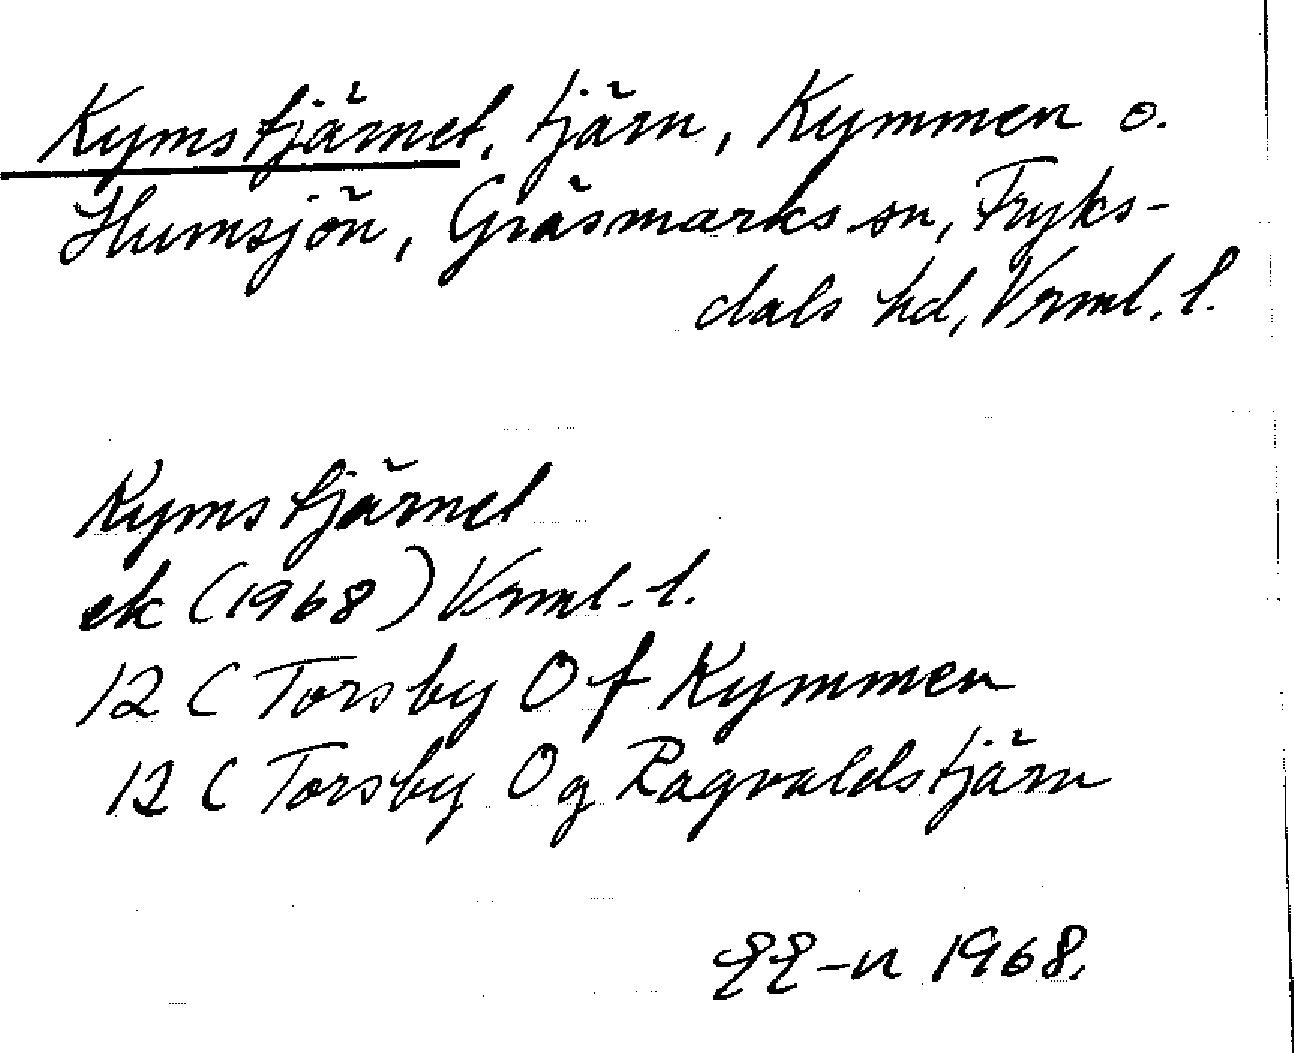 Kymstjärnet, tjärn, Kymmen o.
Humsjön, Gräsmarks sn, Fryks-
dals hd, Vrml. l.
Kymstjärnet
ek (1968) Vrml. l.
12 C Torsby 0 f Kymmen
12 C Torsby 0 g Ragvaldstjärn
EE-n 1968.